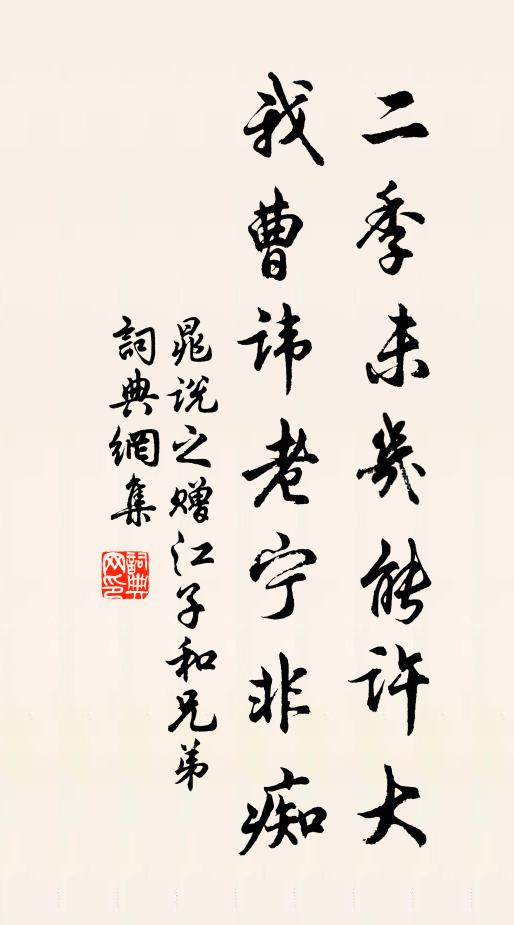 二季未几能许大
我曹讳老宁非痴
晁说之赠江子和兄弟
詞典網集
詞典
网印